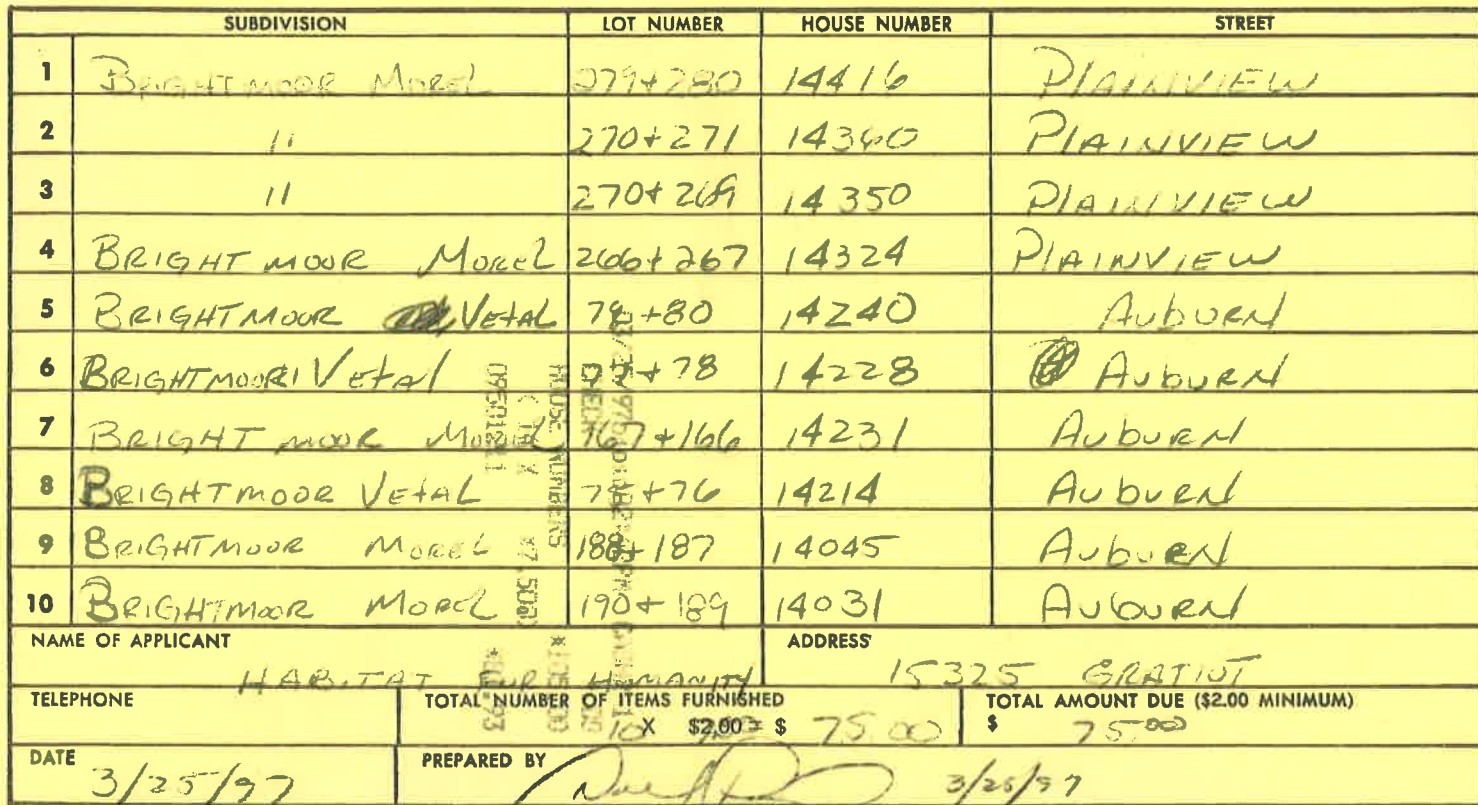 SUBDIVISION LOT NUMBER HOUSE NUMBER STREET
1 BRIGHTMOOR MOREL 279+280 14416 PLAINVIEW
2 " 270+271 14360 PLAINVIEW
3 " 270+269 14350 PLAINVIEW
4 BRIGHTMOOR MOREL 266+267 14324 PLAINVIEW
5 BRIGHTMOOR VETAL 79+80 14240 AUBURN
6 BRIGHTMOOR VETAL 77+78 14228 AUBURN
7 BRIGHTMOOR MOREL 167+166 14231 AUBURN
8 BRIGHTMOOR VETAL +76 14214 AUBURN
9 BRIGHTMOOR MOREL 188+187 14045 AUBURN
10 BRIGHTMOOR MOREL 190+189 14031 AUBURN
NAME OF APPLICANT ADDRESS
HABITAT FOR HUMANITY 15325 GRATIOT
TELEPHONE TOTAL NUMBER OF ITEMS FURNISHED TOTAL AMOUNT DUE ($2.00 MINIMUM)
10 X $2.00 = $ 75.00 $ 75.00
DATE PREPARED BY
3/25/97 3/25/97
HOUSE NUMBERS
CHECK